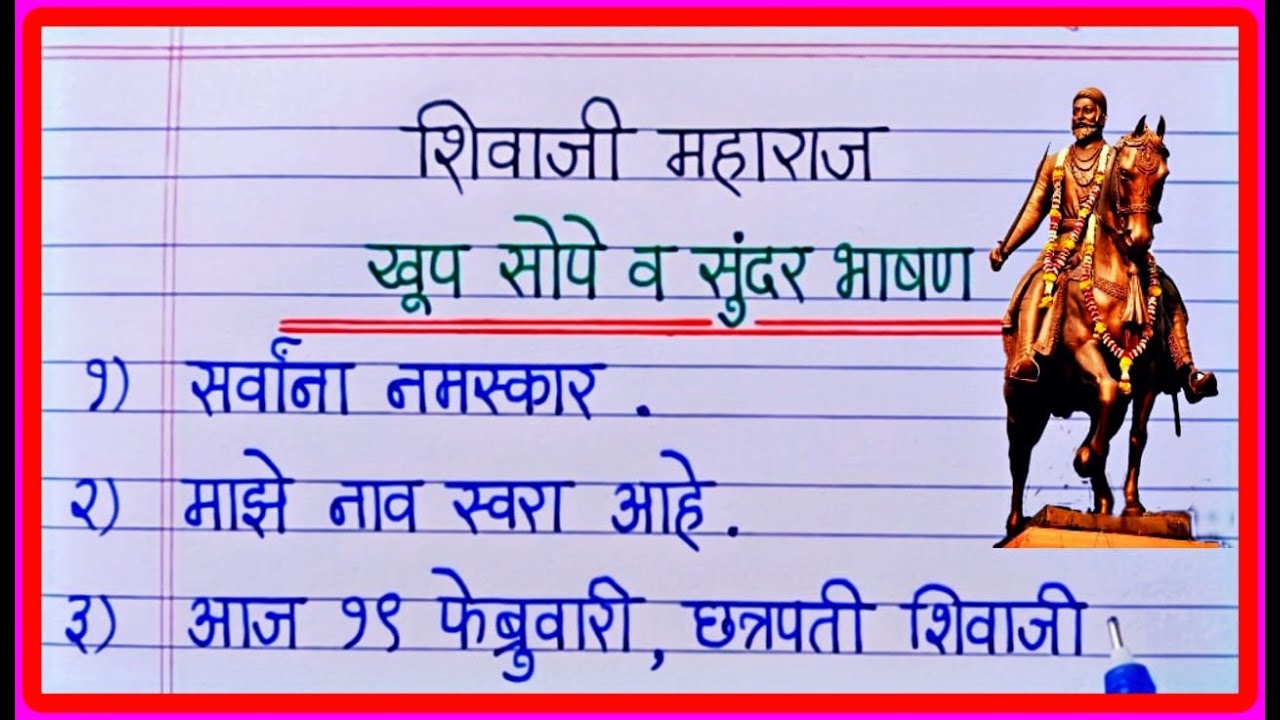 शिवाजी महाराज
खूप सोपे व सुंदर भाषण
१) सर्वांना नमस्कार .
२) माझे नाव स्वरा आहे .
३) आज १९ फेब्रुवारी , छत्रपती शिवाजी